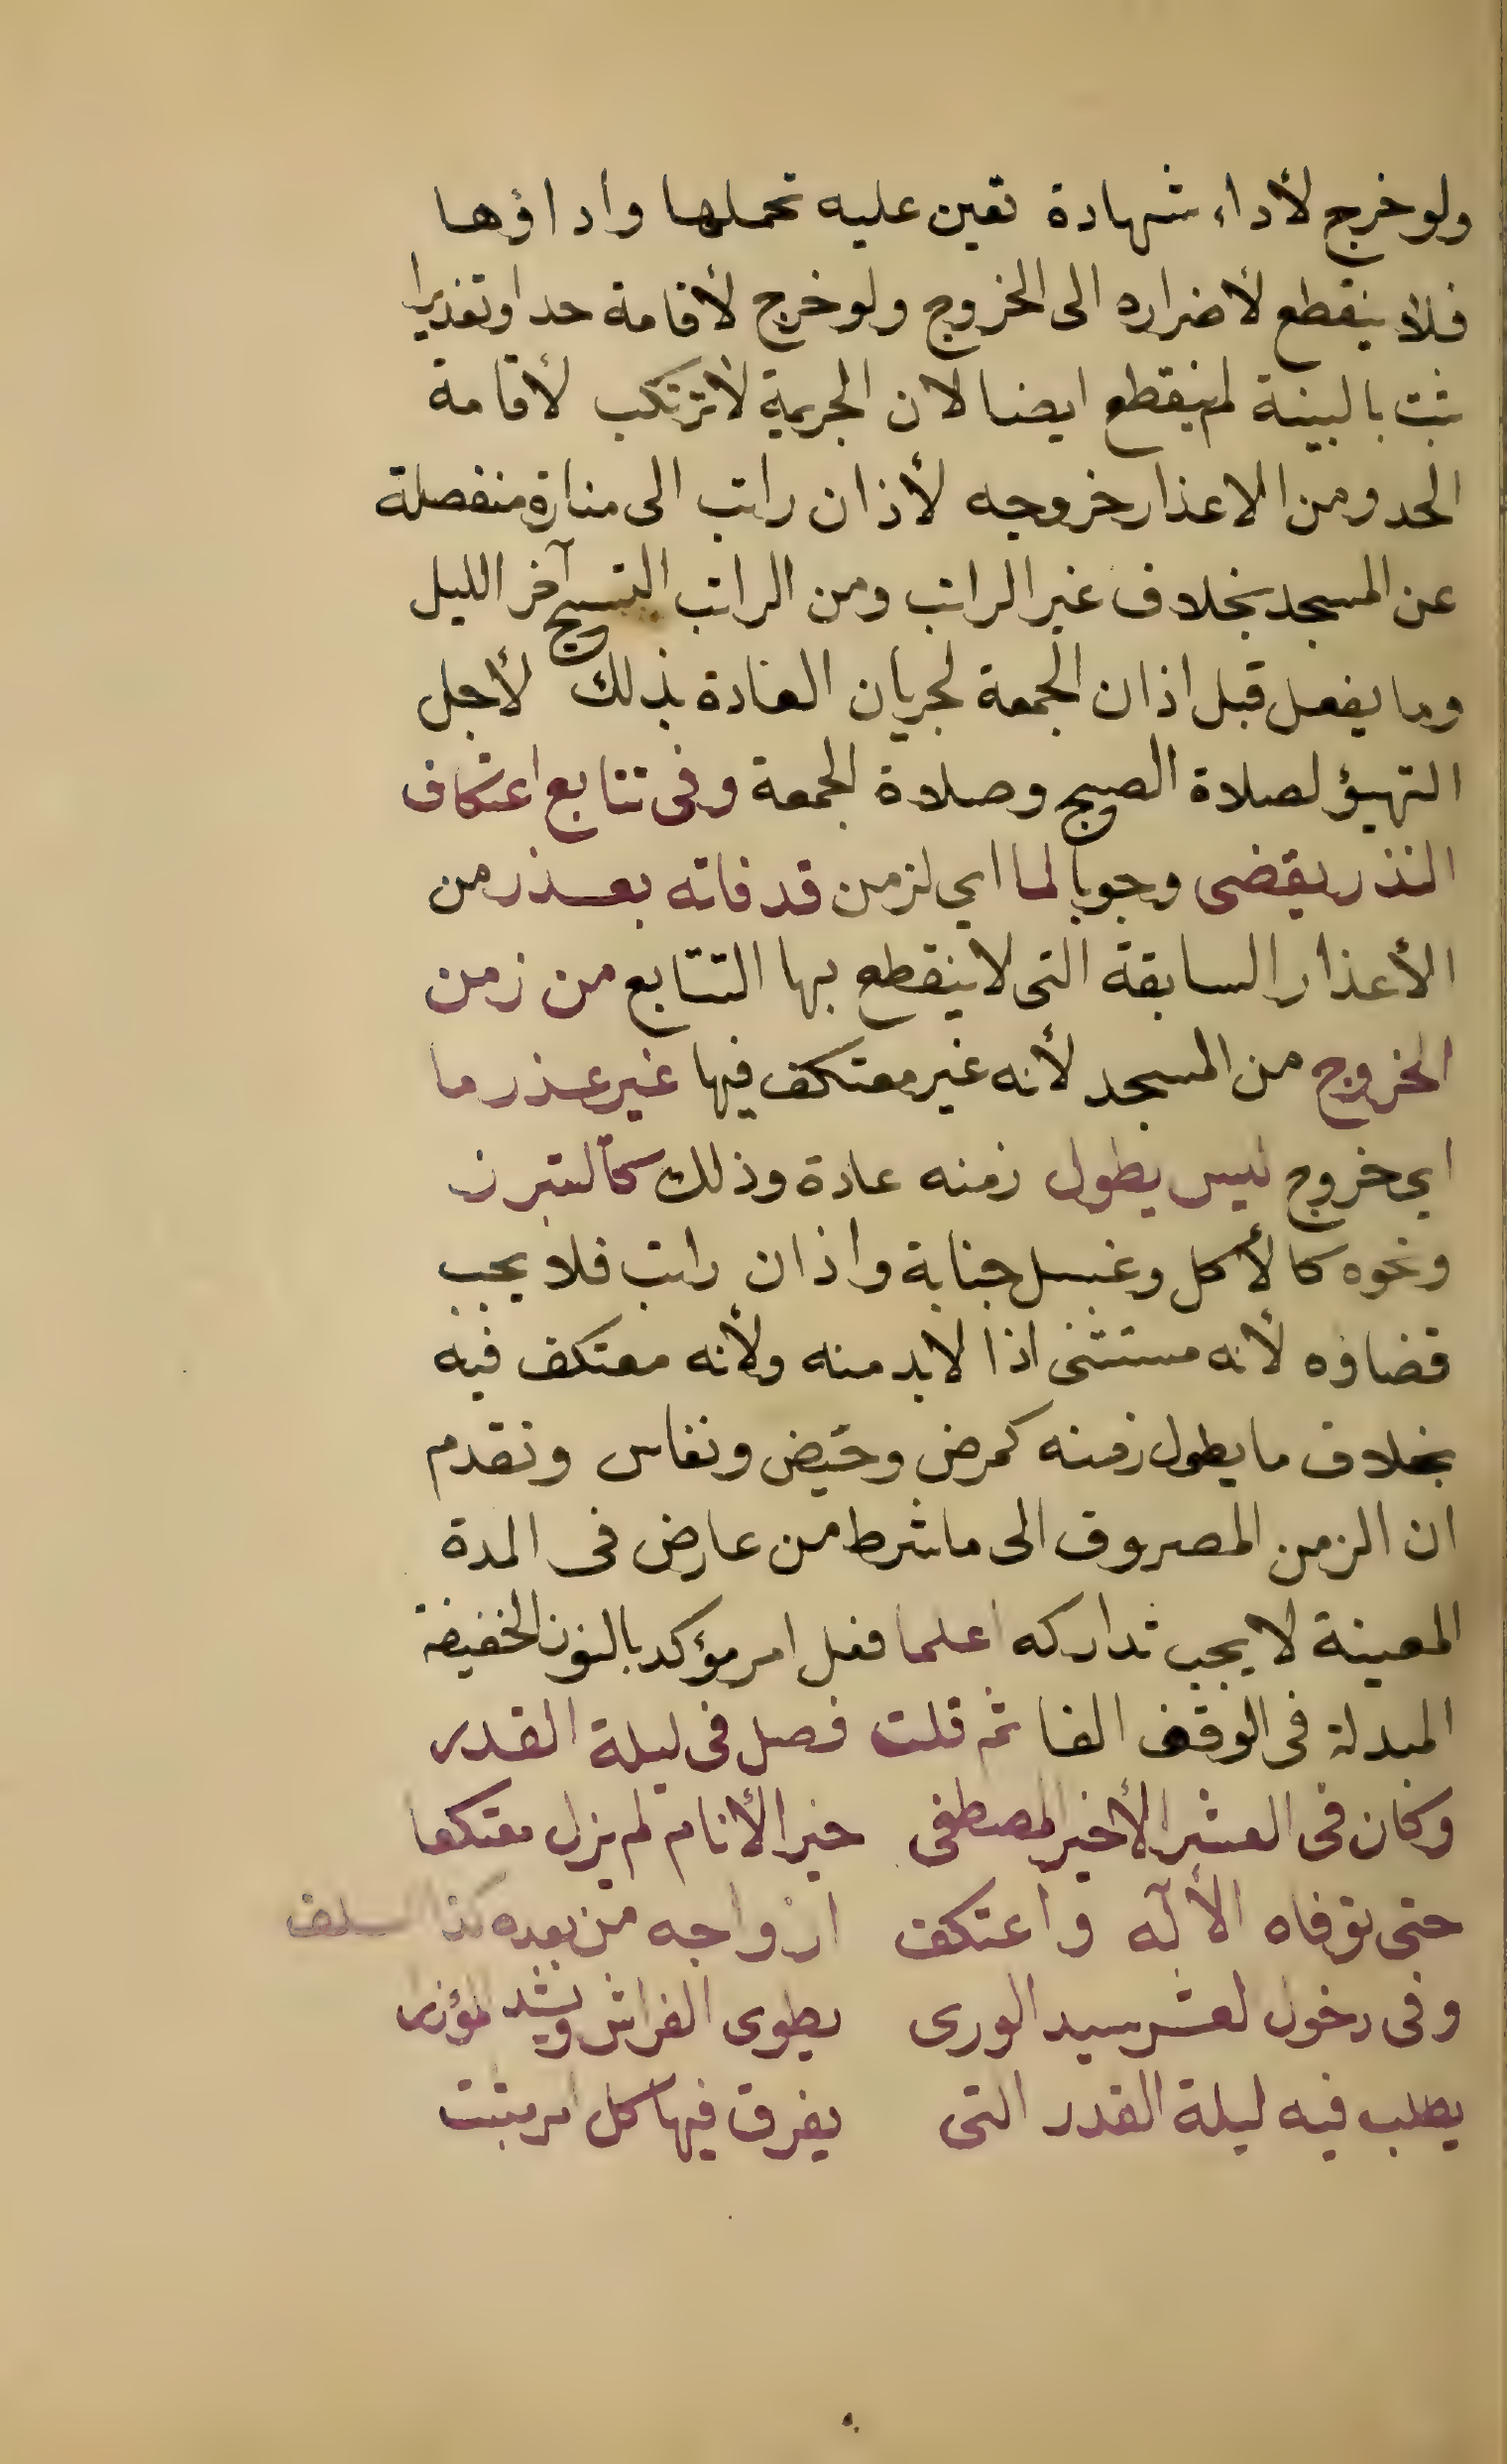 ولو خرج لأداء شهادة تعين عليه تحملها واداؤها
فلا ينقطع لأضراره الى الخروج ولو خرج لأقامة حد او تعذيرا
ثبت بالبينة لم ينقطع ايضا لان الجريمة لا ترتكب لأقامة
الحد ومن الاعذار خروجه لأذان راتب الى منارة منفصلة
عن المسجد بخلاف غير الراتب ومن الراتب التسبيح آخر الليل
وما يفعل قبل اذان الجمعة لجريان العادة بذلك لأجل
التهيؤ لصلاة الصبح وصلاة الجمعة وفى تتابع اعتكاف
النذر يقضى وجوبا لما اي لزمن قد فاته بعذر من
الأعذار السابقة التى لا ينقطع بها التتابع من زمن
الخروج من المسجد لأنه غير معتكف فيها غير عذر ما
اي خروج ليس يطول زمنه عادة وذلك كالتبرز
ونحوه كالأكل وغسل جنابة واذان راتب فلا يجب
قضاؤه لأنه مستثنى اذا لابد منه ولأنه معتكف فيه
بخلاف ما يطول زمنه كمرض وحيض ونفاس وتقدم
ان الزمن المصروف الى ما شرط من عارض فى المدة
المعينة لا يجب تداركه اعلما فعل امر مؤكد بالنون الخفيفة
المبدلة فى الوقف الفا ثم قلت فصل فى ليلة القدر
وكان فى العشر الأخير المصطفى خير الأنام لم يزل معتكفا
حتى توفاه الأله واعتكف ازواجه من بعده كذا السلف
وفى دخول العشر سيد الورى يطوى الفراش ويشد المؤزرا
يطلب فيه ليلة القدر التى يفرق فيها كل امر مثبت